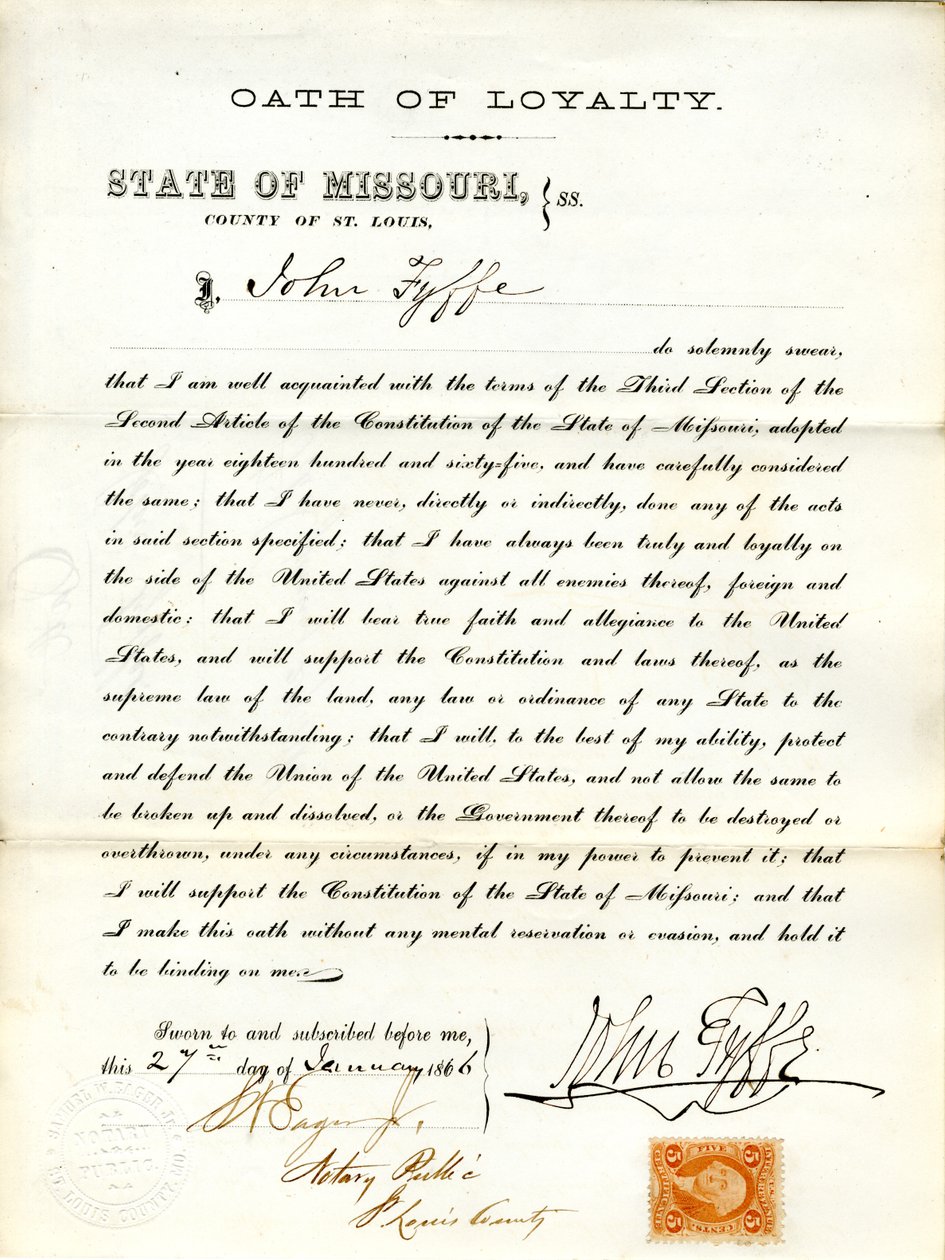 OATH OF LOYALTY.
STATE OF MISSOURI, } SS.
COUNTY OF ST. LOUIS,
I, John Fyffe
do solemnly swear,
that I am well acquainted with the terms of the Third Section of the
Second Article of the Constitution of the State of Mißouri, adopted
in the year eighteen hundred and sixty=five, and have carefully considered
the same; that I have never, directly or indirectly, done any of the acts
in said section specified; that I have always been truly and loyally on
the side of the United States against all enemies thereof, foreign and
domestic: that I will bear true faith and allegiance to the United
States, and will support the Constitution and laws thereof, as the
supreme law of the land, any law or ordinance of any State to the
contrary notwithstanding; that I will, to the best of my ability, protect
and defend the Union of the United States, and not allow the same to
be broken up and dissolved, or the Government thereof to be destroyed or
overthrown, under any circumstances, if in my power to prevent it; that
I will support the Constitution of the State of Mißouri; and that
I make this oath without any mental reservation or evasion, and hold it
to be binding on me.
Sworn to and subscribed before me,
this 27th day of January 1866
John Fyffe.
S W Eager Jr.
Notary Public
St Louis County
NOTARY
PUBLIC
ST. LOUIS COUNTY, MO.
5 FIVE 5
CERTIFICATE
U.S. INTER. REVENUE
5 CENTS. 5